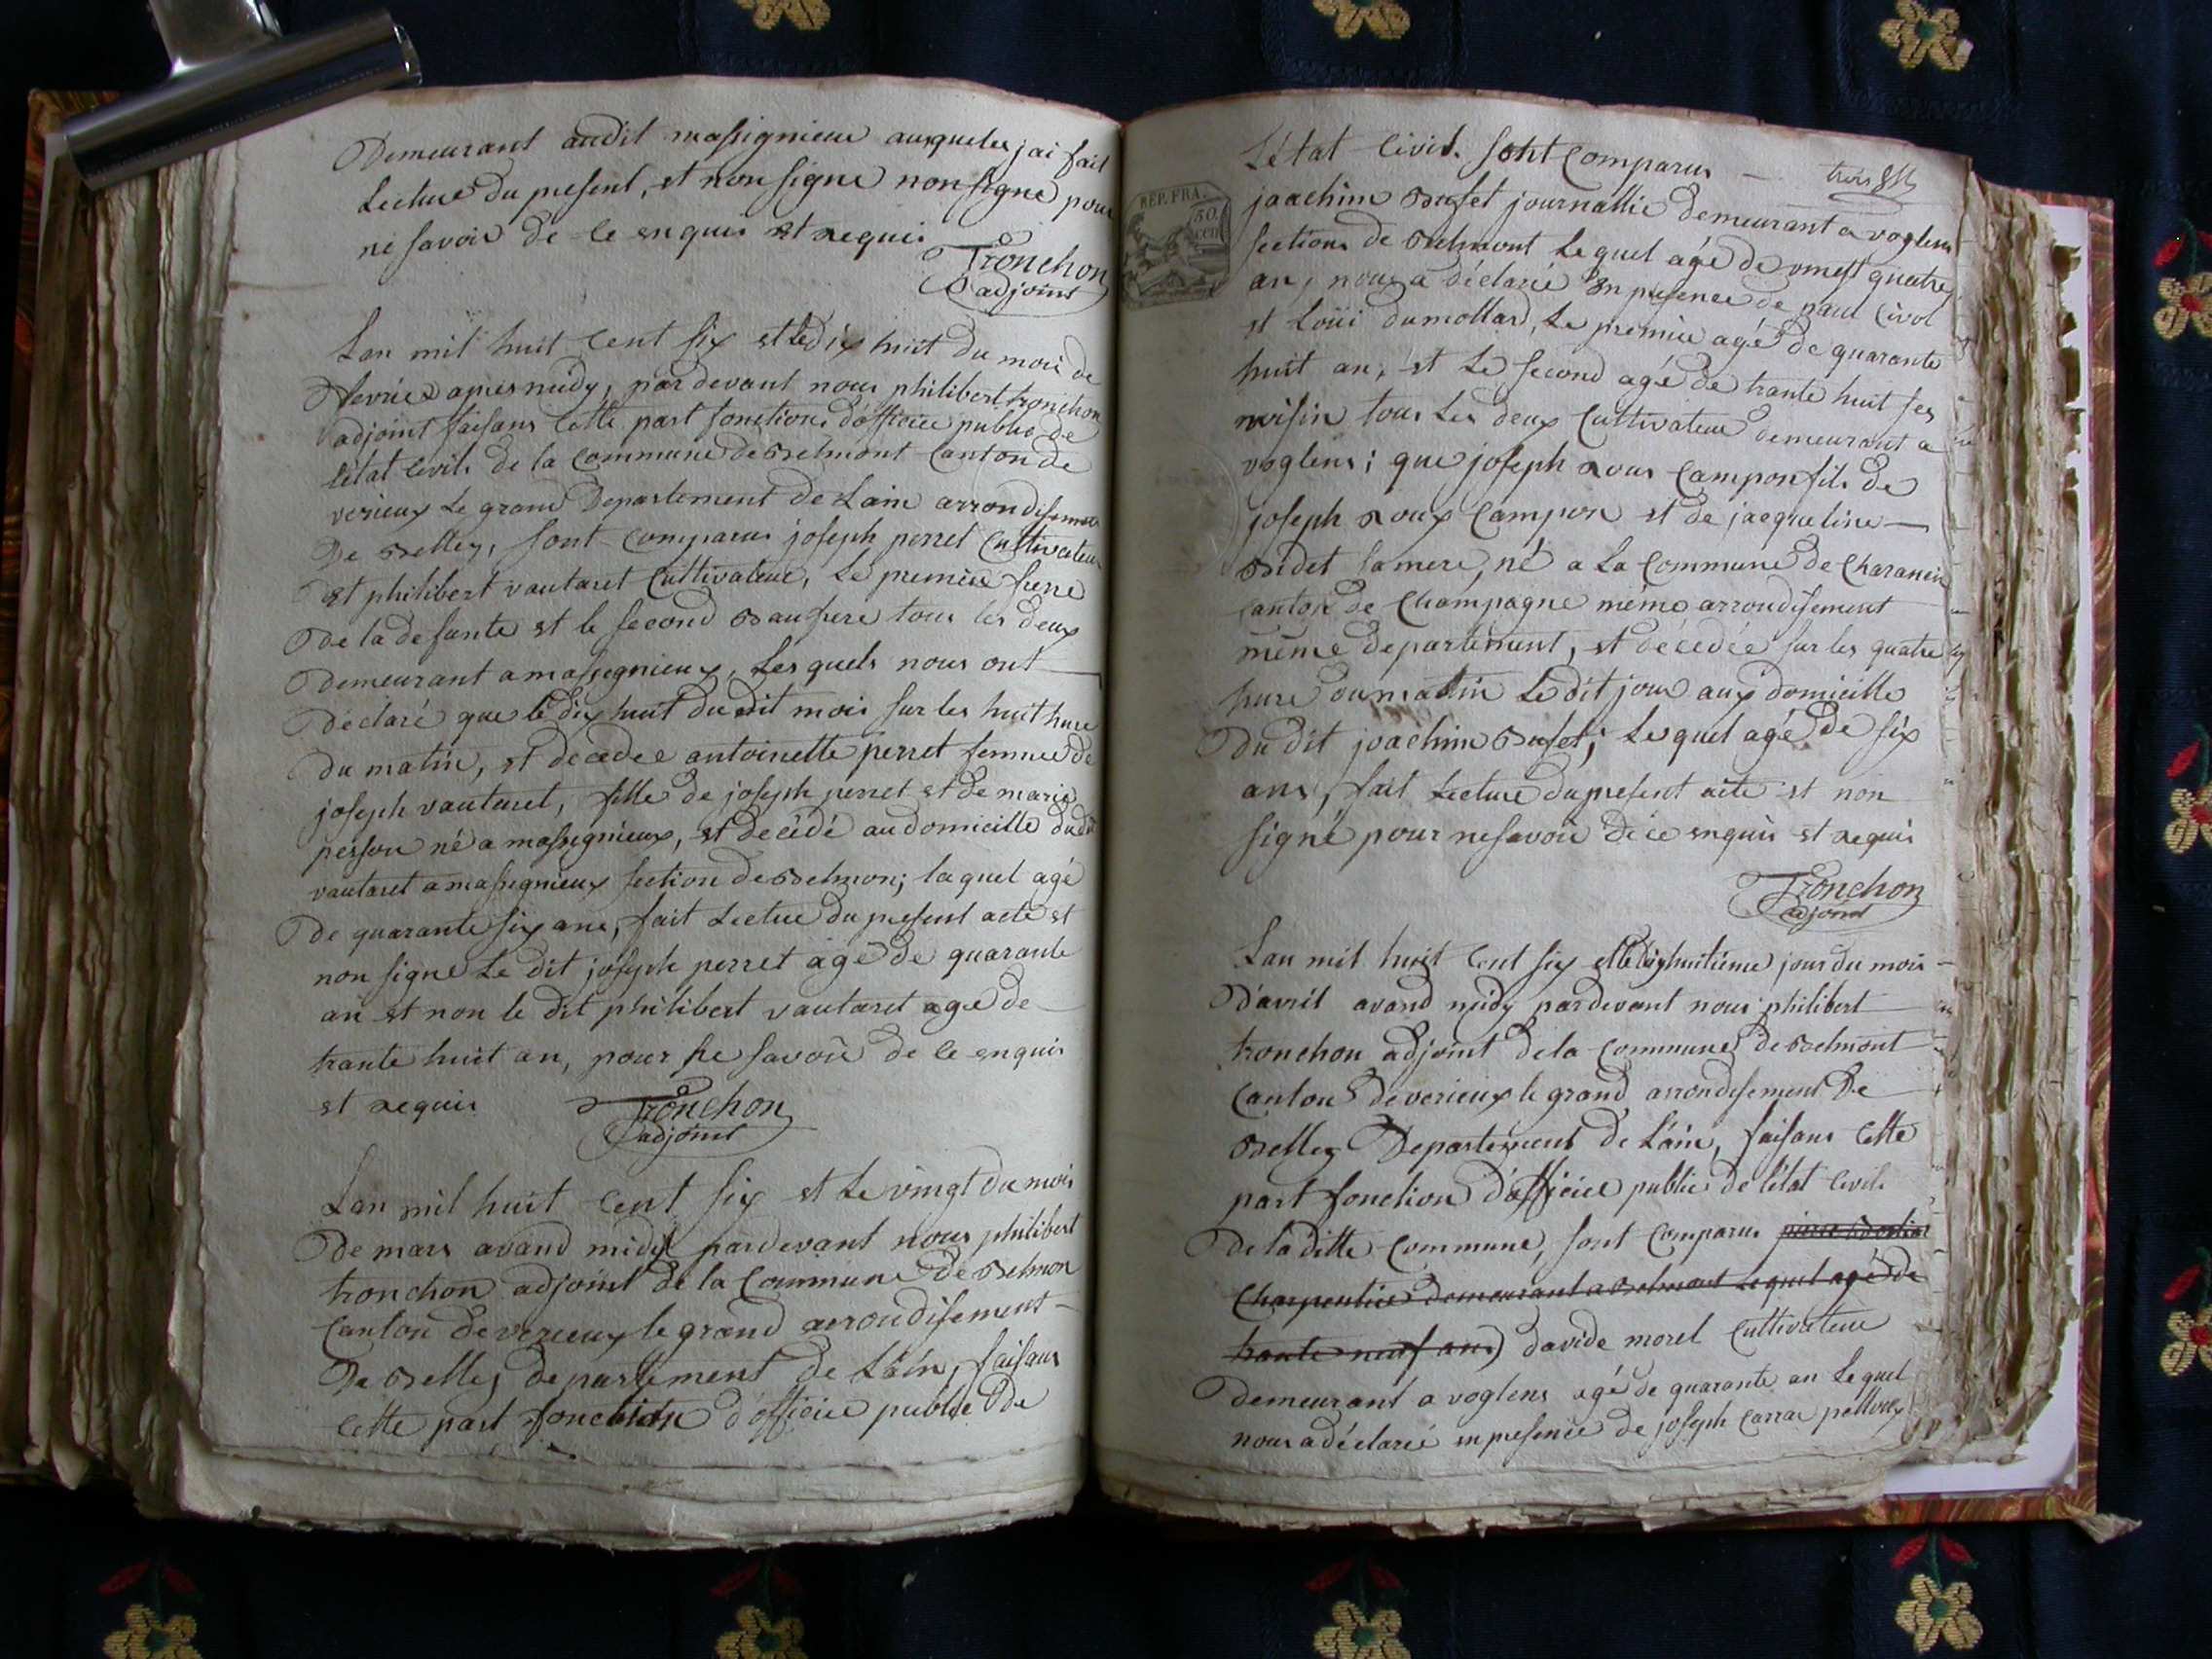 Demeurant audit massignieu auxqueles jai fait
Lecture du present, et non signe non signe pour
ne savoir de ce enquis et requis
Tronchon
adjoint
Lan mil huit cent six et le dix huit du mois de
fevrier apres midy, par devant nous philibert tronchon
adjoint faisans cette part fonction d'officier public de
l'état civil de la commune de Belmont canton de
virieux le grand Departement de Lain arrondisement
De Belley, sont comparus joseph perret Cultivateur
et philibert vautaret Cultivateur, Le premier frere
De la defunte et le second Beaufrere tous les deux
Demeurant a massignieux, Lesquels nous ont
Déclaré que le dix huit dudit mois sur les huit hure
du matin, et decedee antoinette perret femme de
joseph vautaret, fille de joseph perret et de marie
person né a massignieux, et décédé au domicille dudit
vautaret a massignieux section de Belmon; laquel agé
De quarante six ans, fait Lecture du present acte et
non signe Le dit joseph perret agé de quarante
an et non le dit philibert vautaret agé de
trante huit an, pour ne savoir de ce enquis
et requis
Tronchon
adjoint
Lan mil huit cent six et Le vingt du mois
De mars avand midy pardevant nous philibert
tronchon adjoint de la Commune de Belmon
Canton de verieux le grand arrondisement
De Belley departement de Lain, faisans
cette part fonction d'officier public de
L'état civil. sont Comparus
REP. FRA.
50
cen
joachim Bufet journallié demeurant a voglens
section de Belmont Lequel agé de vingt quatre
an, nous a déclarée en presence de paul
et Loüi dumollard, Le premier agé de quarante
huit an, et Le second agé de trante huit ses
voisin tous Les deux Cultivateur demeurant a
voglens; que joseph roux Campon fils de
joseph roux Campon et de jacqueline
Bidet sa mere, né a La Commune de Charancin
canton de Champagne même arrondisement
même departement, et décédée sur les quatre
hure du matin Le dit jour aux domicille
Du dit joachim Bufet; Lequel agé de six
ans, fait Lecture du present acte et non
signé pour ne savoir de ce enquis et requis
Tronchon
adjoint
Lan mil huit cent six et le dixhuitieme jour du mois
D'avril avand midy pardevant nous philibert
tronchon adjoint de la Commune de Belmont
Canton de verieux le grand arrondisement De
Belley Departement de L'ain, faisans Cette
part fonction d'officier public de l'état civil.
De la ditte Commune, sont Comparus
Charpentier demeurant a Belmont Lequel agé de
trante neuf ans) davide morel Cultivateur
Demeurant a voglens agé de quarante an Lequel
nous a déclarée en presence de joseph Carra